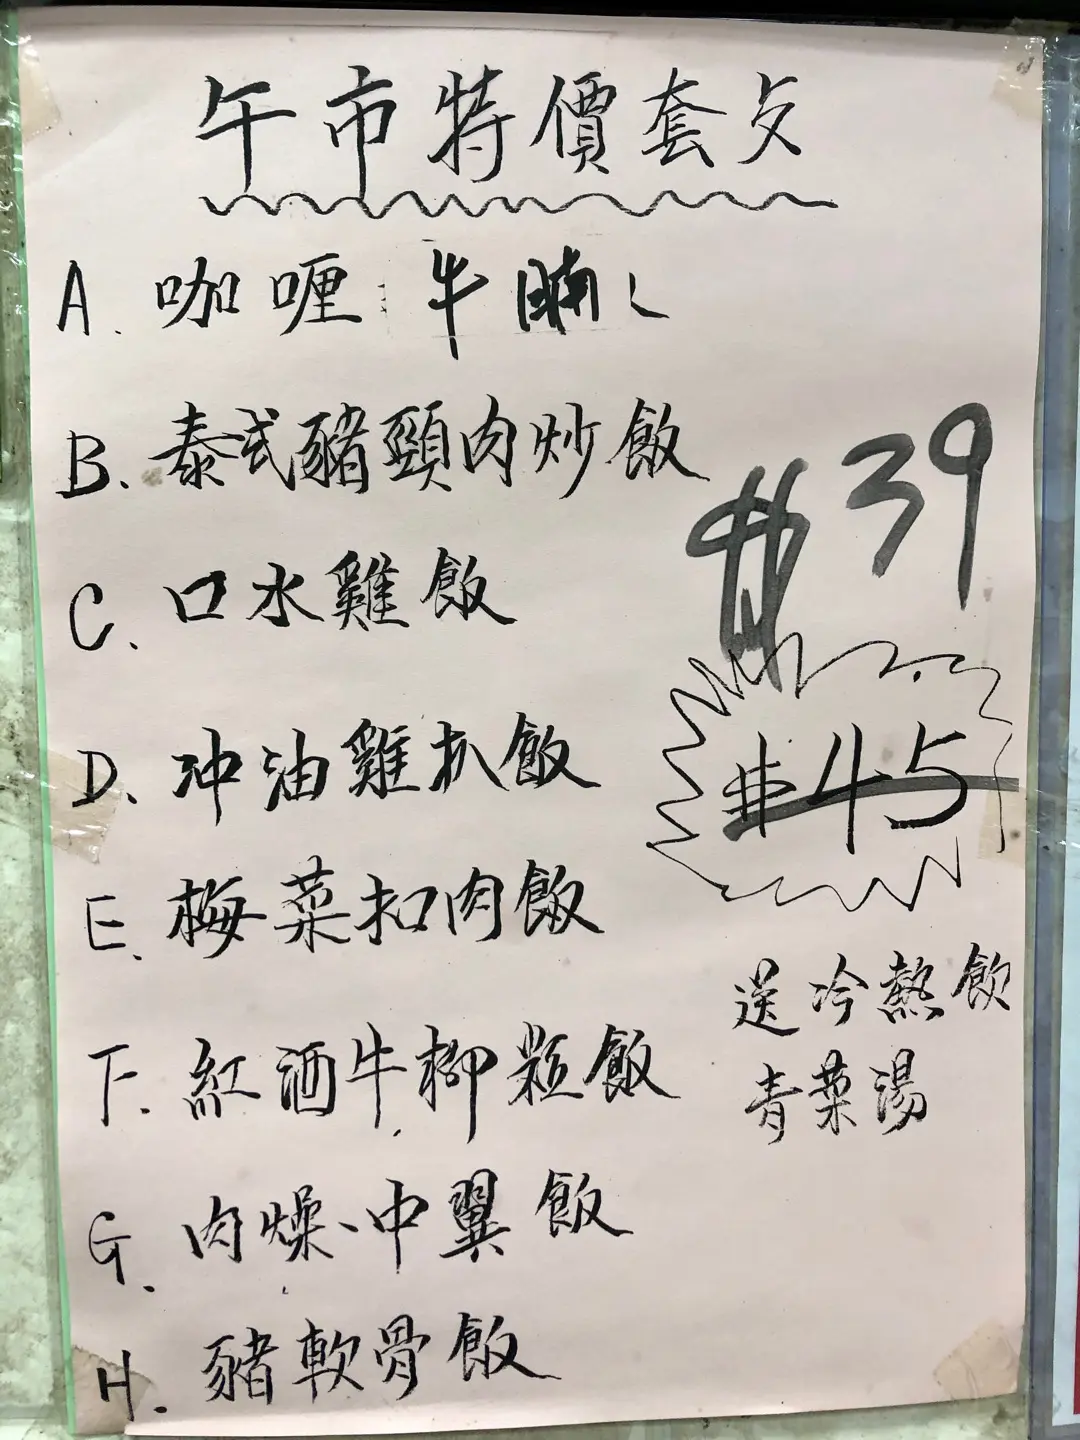 午市特價套歺
A. 咖喱牛腩
B. 泰式豬頸肉炒飯
C. 口水雞飯
D. 冲油雞扒飯
E. 梅菜扣肉飯
F. 紅酒牛柳粒飯
G. 肉燥、中翼飯
H. 豬軟骨飯
$39
$45
送冷熱飲
青菜湯